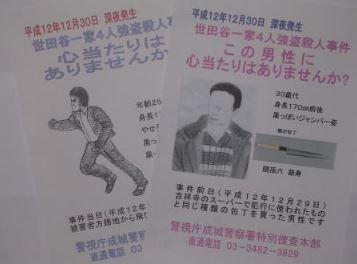 平成12年12月30日 深夜発生
世田谷一家4人強盗殺人事件
心当たりは
ありませんか
身長1
やせ
黒っ
事件当日(平成12年
警視庁成城警察署
直通電話 03-
平成12年12月30日 深夜発生
世田谷一家4人強盗殺人事件
この男性に
心当たりはありませんか?
30歳代
身長170cm前後
黒っぽいジャンパー姿
柳刃包丁
関孫六 銀寿
事件前日(平成12年12月29日)
吉祥寺のスーパーで犯行に使われたもの
と同じ種類の包丁を買った男性です
警視庁成城警察署特別捜査本部
直通電話 03-3482-3829